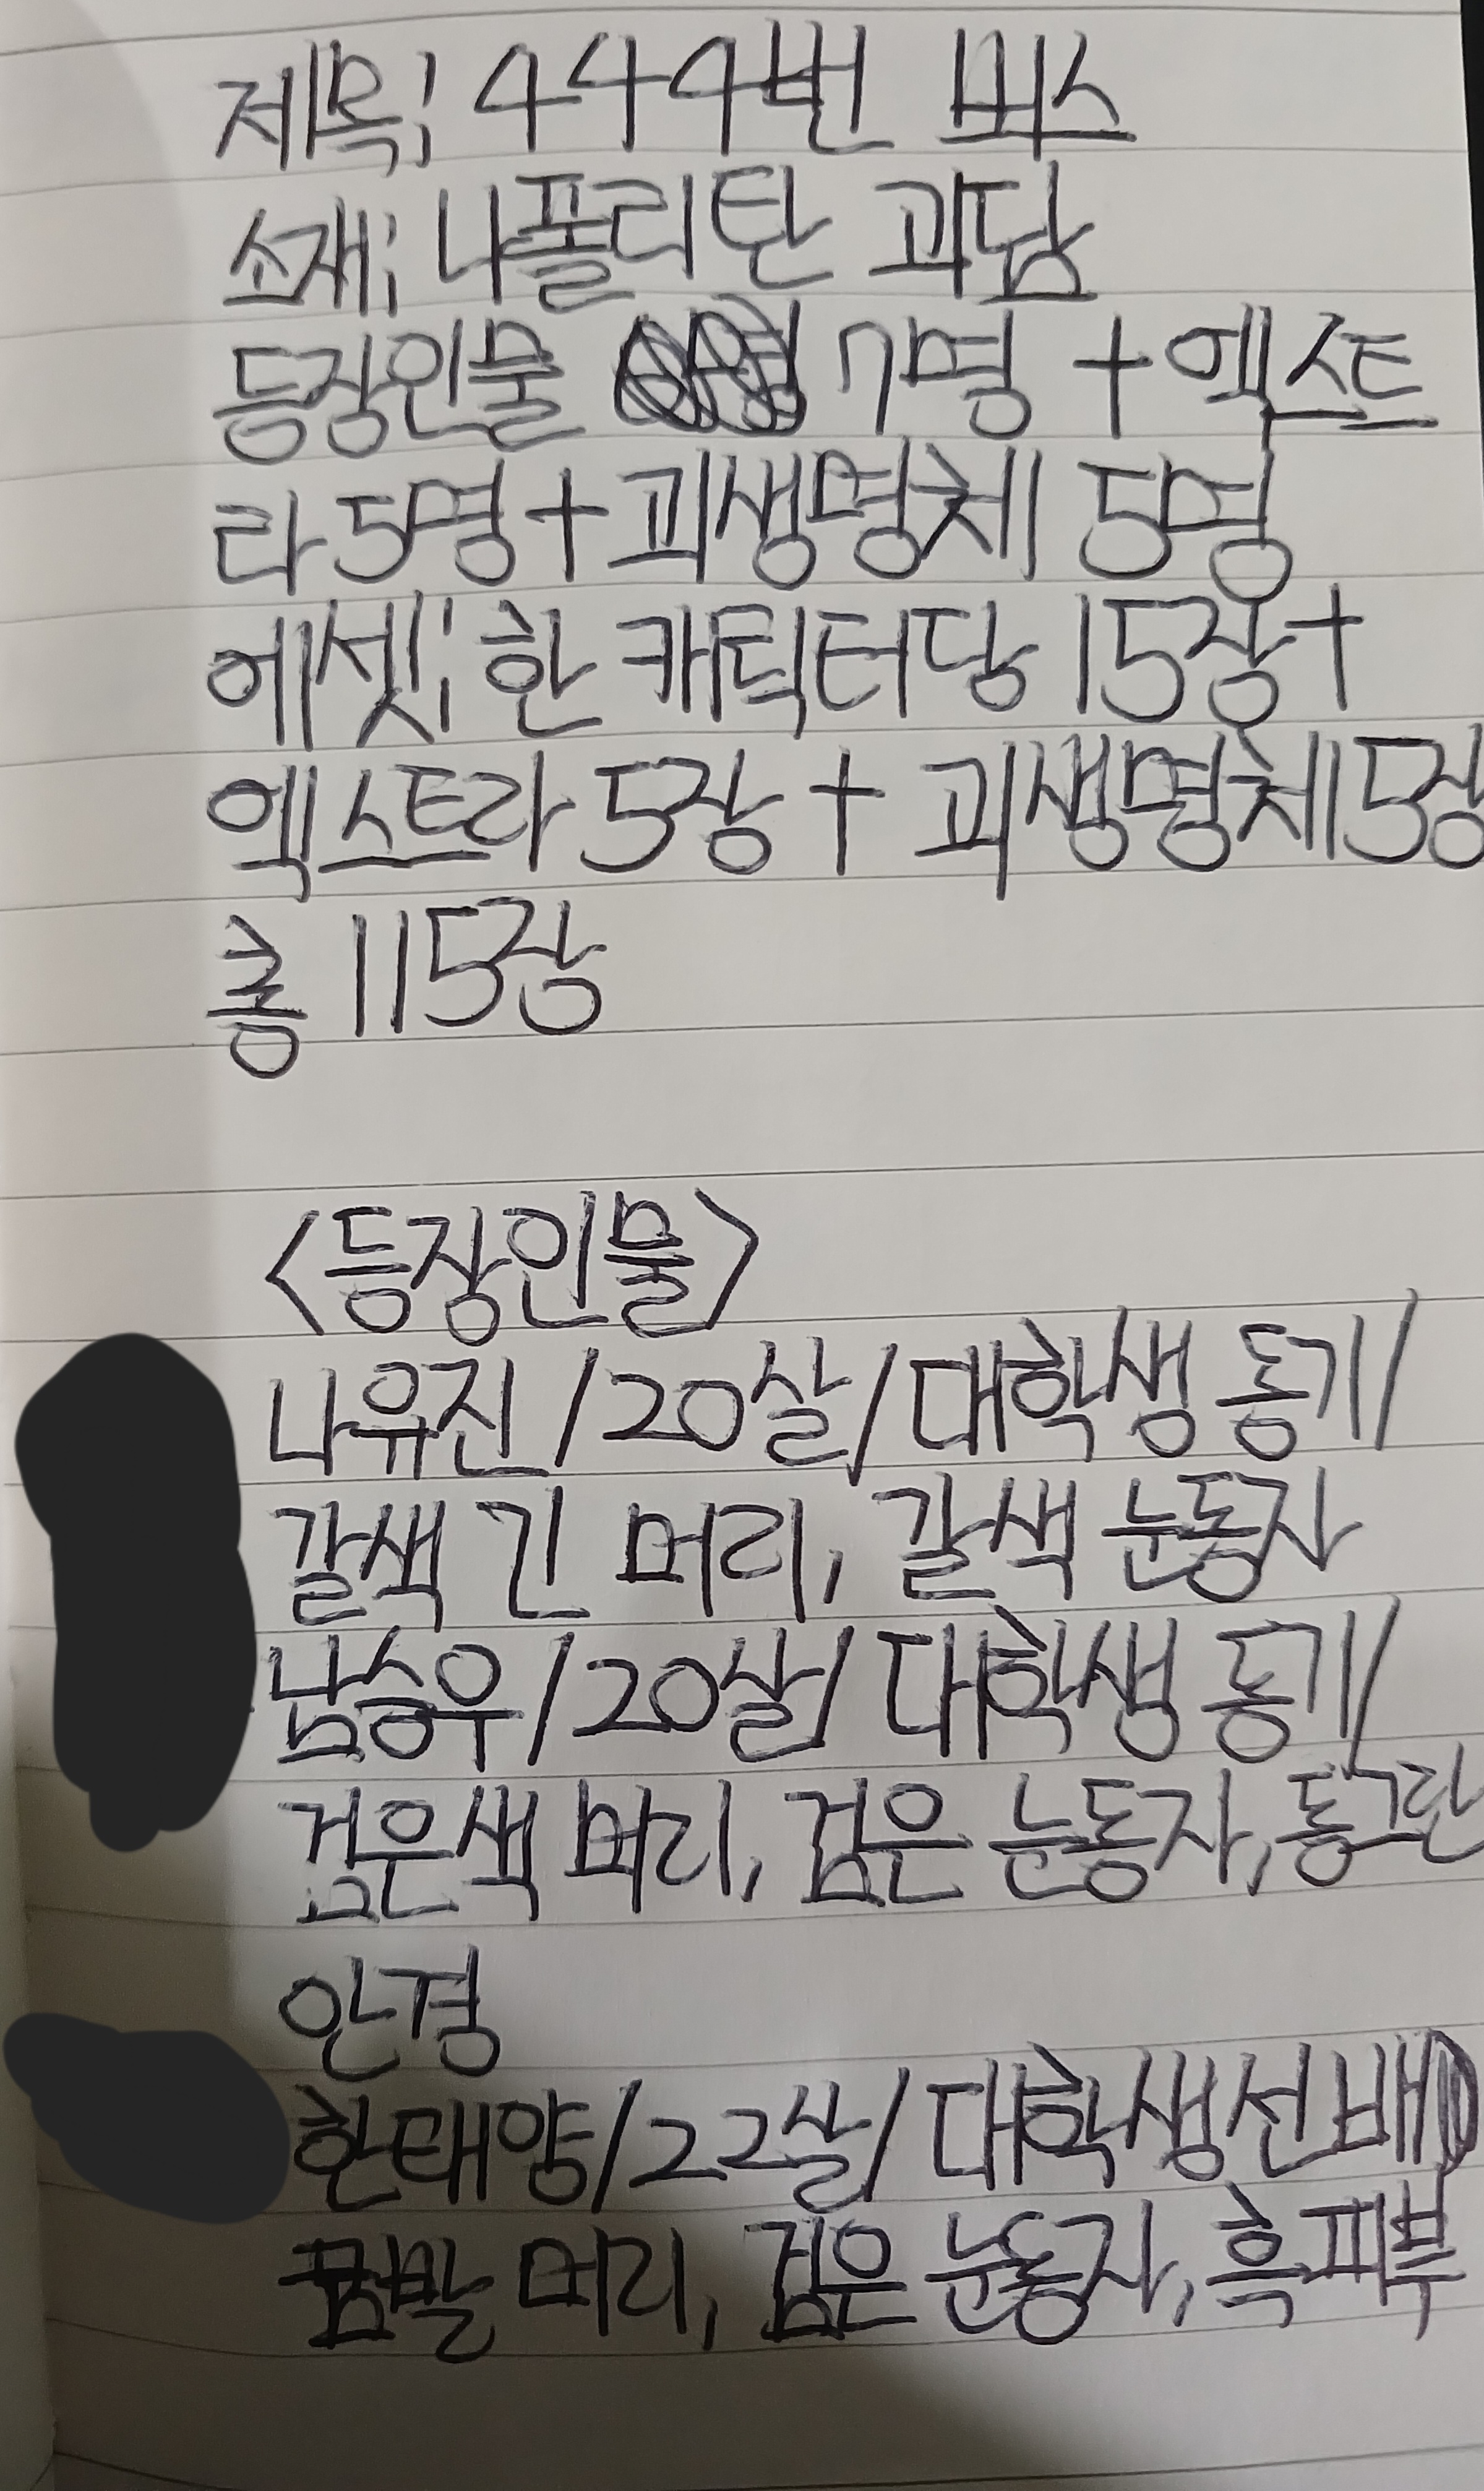 제목; 444번 버스
소재; 나폴리탄 괴담
등장인물 7명 + 엑스트
라 5명 + 괴생명체 5명
에셋; 한 캐릭터당 15장 +
엑스트라 5장 + 괴생명체 5장
총 115장
<등장인물>
나유진 / 20살 / 대학생 동기 /
갈색 긴 머리, 갈색 눈동자
남승우 / 20살 / 대학생 동기 /
검은색 머리, 검은 눈동자, 동그란
안경
한태양 / 22살 / 대학생 선배
금발 머리, 검은 눈동자, 흑피부